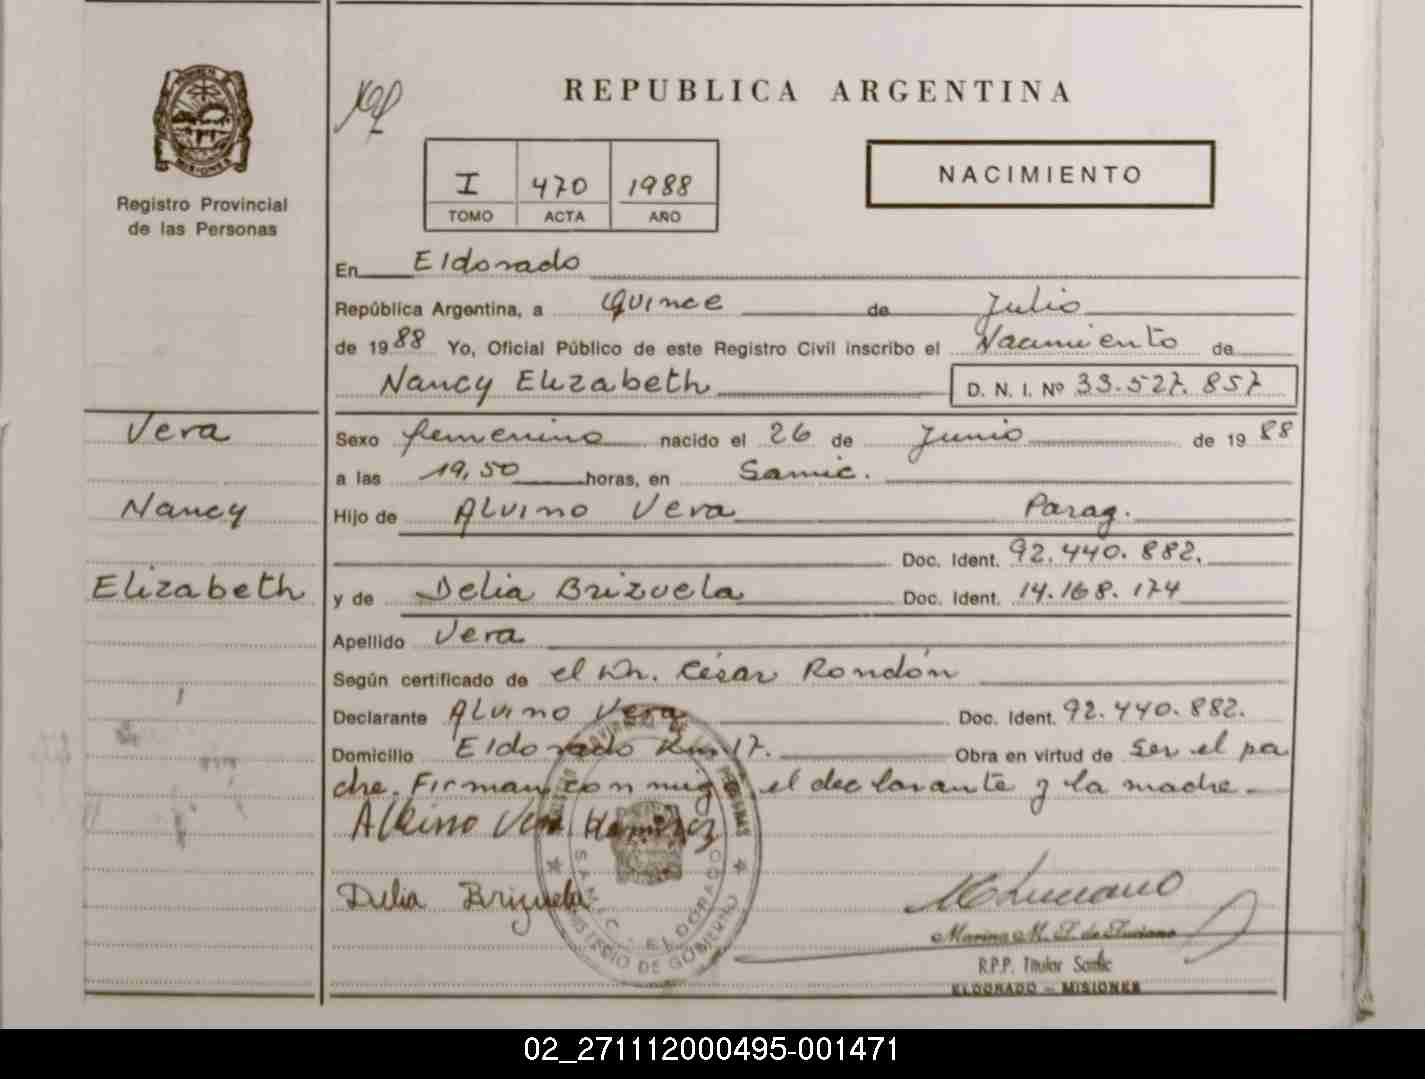 REPUBLICA ARGENTINA
MISIONES
Registro Provincial
de las Personas
I 470 1988
TOMO ACTA AÑO
NACIMIENTO
En Eldorado
República Argentina, a Quince de Julio
de 1988 Yo, Oficial Público de este Registro Civil inscribo el Nacimiento de
Nancy Elizabeth D. N. I. Nº 33.527.857
Vera
Nancy
Elizabeth
Sexo femenino nacido el 26 de Junio de 1988
a las 19,50 horas, en Samic.
Hijo de Alvino Vera Parag.
Doc. Ident. 92.440.882.
y de Delia Brizuela Doc. Ident. 14.168.174
Apellido Vera
Según certificado de el Dr. César Rondón
Declarante Alvino Vera Doc. Ident. 92.440.882.
Domicilio Eldorado Km 17. Obra en virtud de ser el pa
dre. Firman conmigo el declarante y la madre.
Albino Vera Ramirez
Delia Brizuela
SAMIC - ELDORADO
MINISTERIO DE GOBIERNO
Marina M. T. de Luciano
R.P.P. Titular Samic
ELDORADO - MISIONES
02_271112000495-001471